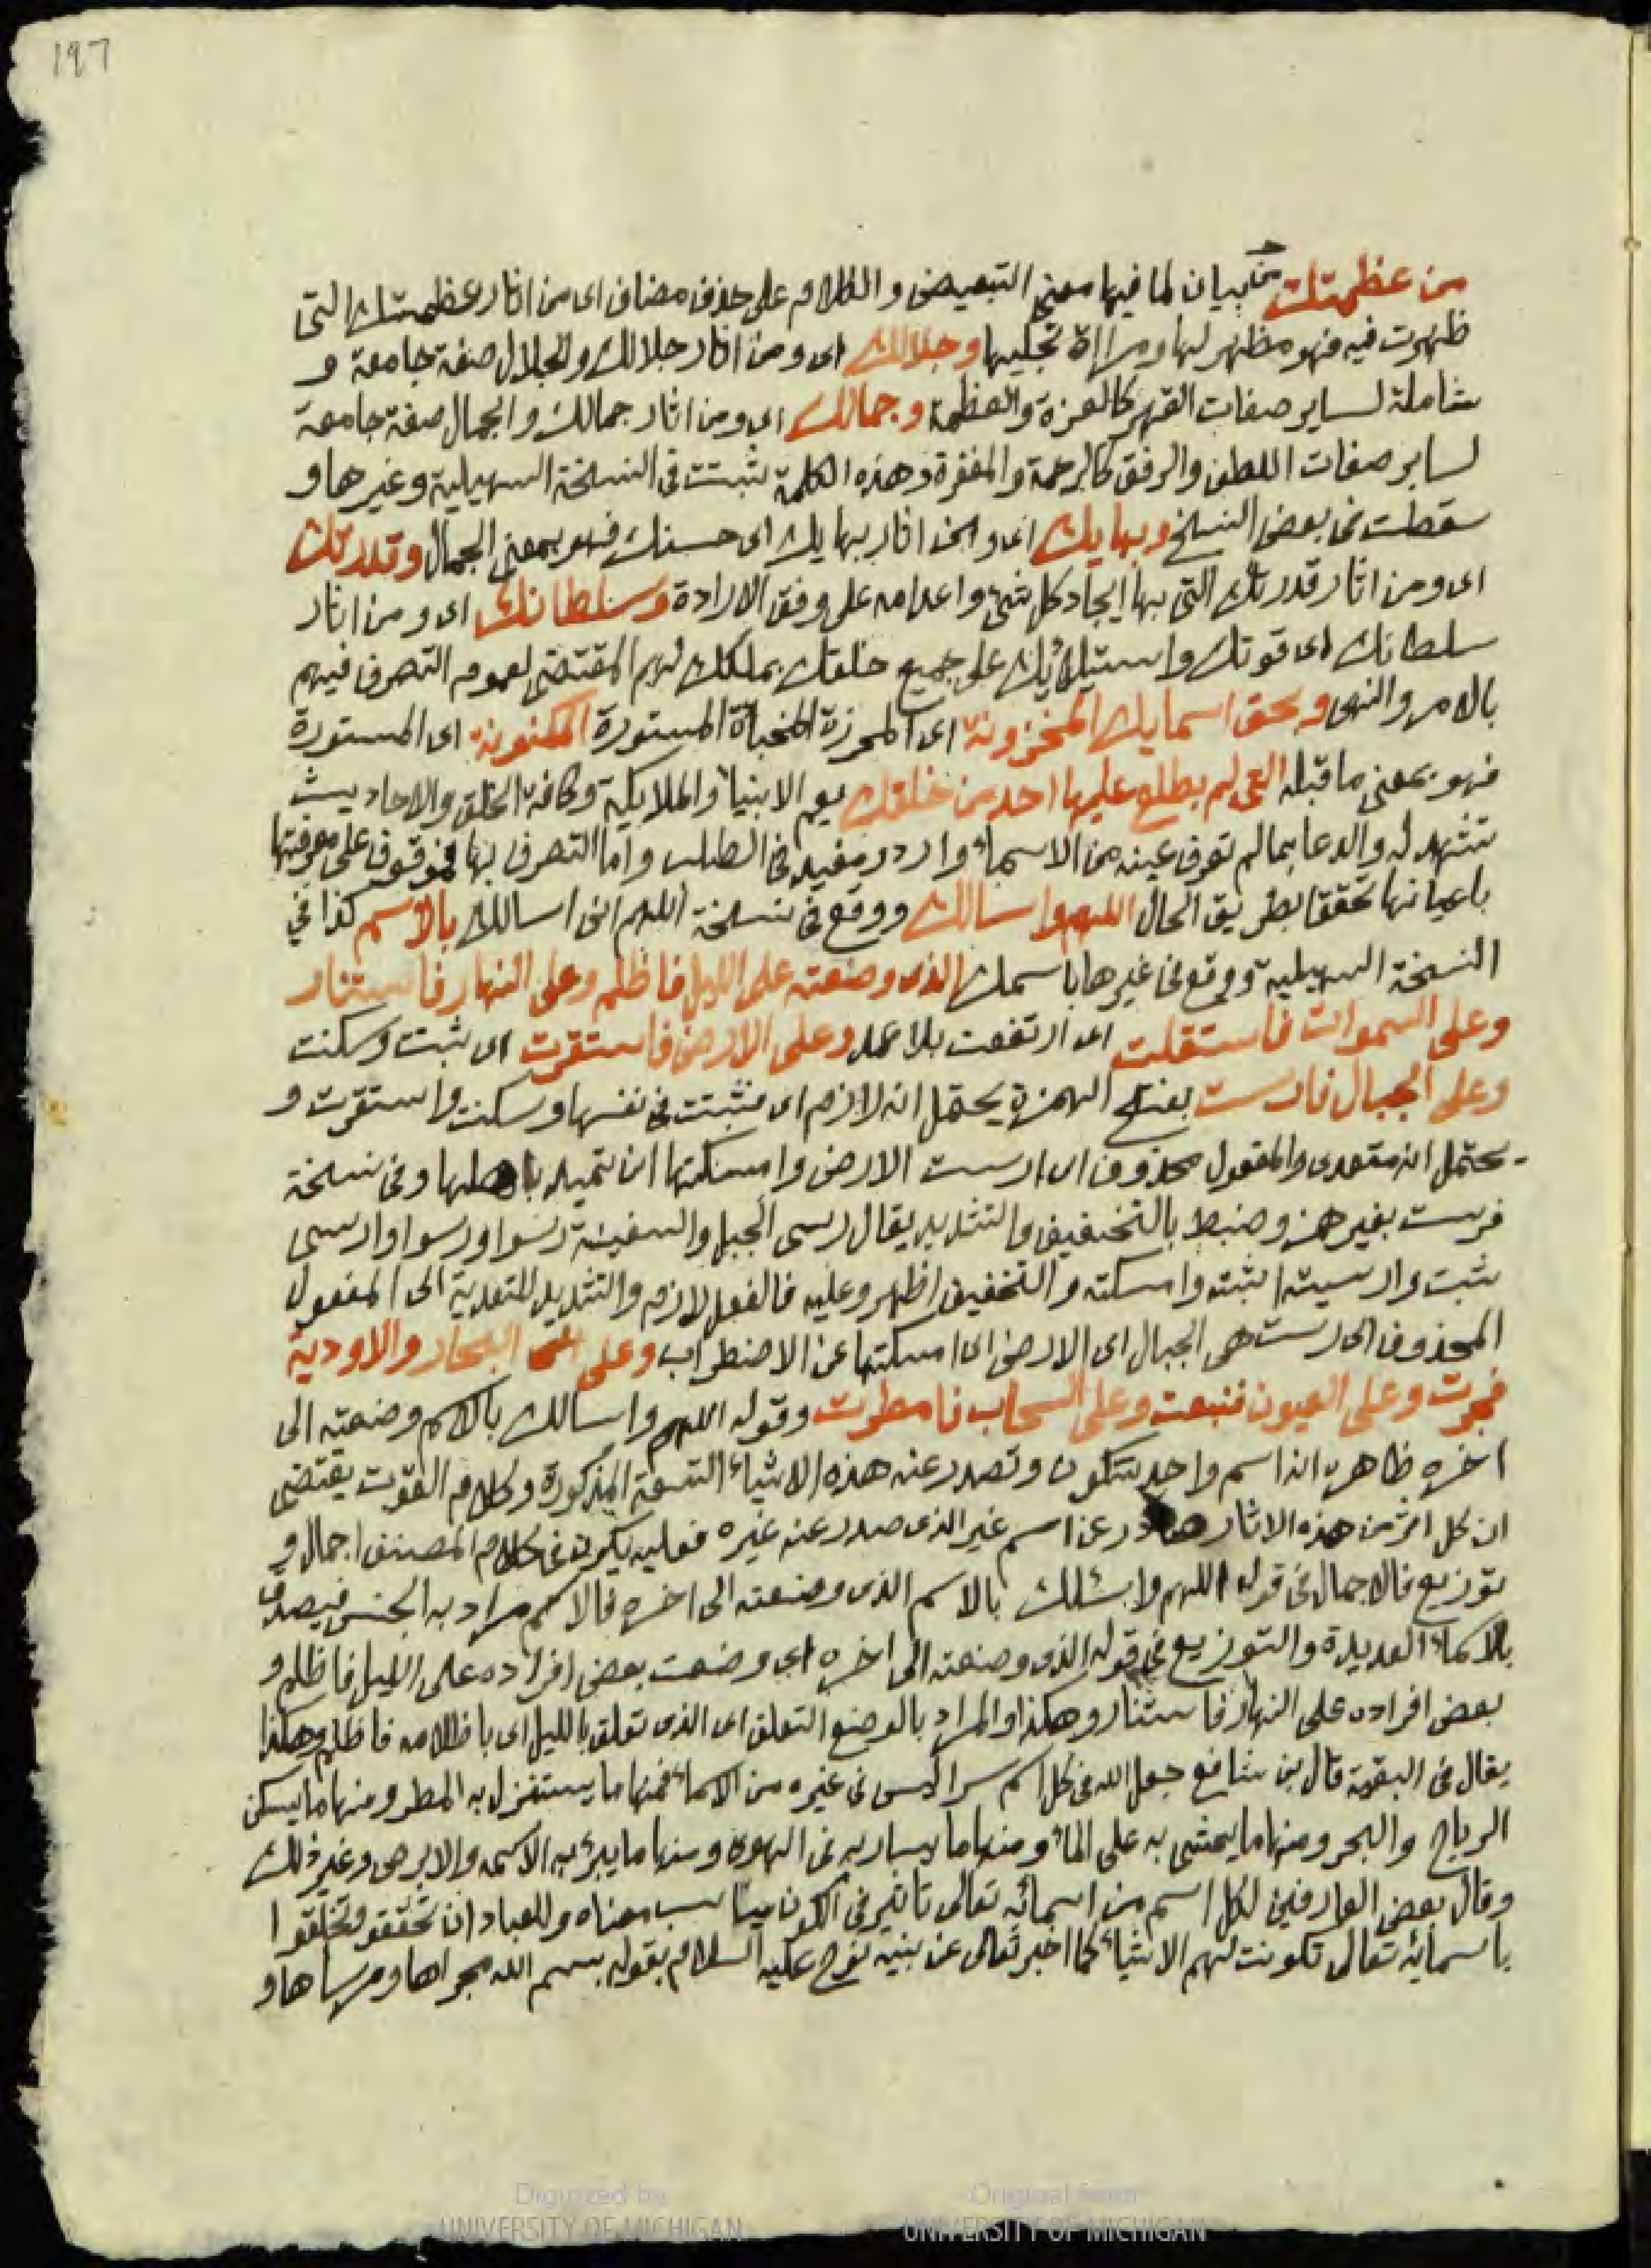 197
من عظمتك من بيان لما فيها معنى التبعيض والكلام على حذف مضاف اى من اثار عظمتك التى
ظهرت فيه فهو مظهر لها ومراة تجليها وجلالك اى ومن اثار جلالك والجلال صفة جامعة و
شاملة لساير صفات القهر كالعزة والعظمة وجمالك اى ومن اثار جمالك والجمال صفة جامعة
لساير صفات اللطف والرفق كالرحمة والمغفرة وهذه الكلمة ثبتت فى النسخة السهيلية وغيرها و
سقطت فى بعض النسخ وبهايك اى ومن اثار بهايك اى حسنك فهو بمعنى الجمال وقدرتك
اى ومن اثار قدرتك التى بها ايجاد كل شئ واعدامه على وفق الارادة وسلطانك اى ومن اثار
سلطانك اى قوتك واستيلائك على جميع خلقك بملكك لهم المقتضى لعموم التصرف فيهم
بالامر والنهى وبحق اسمايك المخزونة اى المحرزة المخباة المستورة المكنونة اى المستورة
فهو بمعنى ما قبله التى لم يطلع عليها احد من خلقك يعم الانبياء والملايكة وكافة الخلق والاحاديث
تشهد له والدعا بما لم تعرف عينه من الاسماء وارد مفيد فى الطلب واما التصرف بها فموقوف على معرفتها
باعيانها تحققا بطريق الحال اللهم واسالك ووقع فى نسخة اللهم انى اسالك بالاسم كذا في
النسخة السهيلية ووقع فى غيرها باسمك الذى وضعته على الليل فاظلم وعلى النهار فاستنار
وعلى السموات فاستقلت اى ارتفعت بلا عمد وعلى الارض فاستقرت اى ثبتت وسكنت
وعلى الجبال فارست بفتح الهمزة يحتمل انه لازم اى فثبتت فى نفسها وسكنت واستقرت و
يحتمل انه متعدى والمفعول محذوف اى ارست الارض وامسكتها ان تميد باهلها وفى نسخة
فرست بغير همز وضبط بالتخفيف والتشديد يقال رسى الجبل والسفينة رسوا ورسوا وارسى
ثبت وارسيته اثبته وامسكته والتخفيف اظهر وعليه فالفعل لازم والتشديد للتعدية الى المفعول
المحذوف اى رست هى الجبال اى الارض اى امسكتها عن الاضطراب وعلى البحار والاودية
فجرت وعلى العيون فنبعت وعلى السحاب فامطرت وقوله اللهم واسالك بالاسم وضعته الى
اخره ظاهره انه اسم واحد تتكون وتصدر عنه هذه الاشياء التسعة المذكورة وكلام القوت يقتضى
ان كل اثر من هذه الاثار صادر عن اسم غير الذى صدر عنه غيره فعليه يكون فى كلام المصنف اجمال و
توزيع فالاجمال فى قوله اللهم واسئلك بالاسم الذى وضعته الى اخره فالاسم مراد به الجنس فيصدق
بالاسماء العديدة والتوزيع فى قوله الذى وضعته الى اخره اى وضعت بعض افراده على الليل فاظلم و
بعض افراده على النهار فاستنار وهكذا والمراد بالوضع التعلق اى الذى تعلق بالليل اى باظلامه فاظلم وهكذا
يقال فى البقية قال بن شافع جعل الله فى كل اسم سرا ليس فى غيره من الاسماء فمنها ما يستنزل به المطر ومنها ما يسكن
الرياح والبحر ومنها ما يمشى به على الماء ومنها ما يسار به فى الهوى ومنها ما يبرئ به الاكمه والابرص وغير ذلك
وقال بعض العارفين لكل اسم من اسمائه تعالى تاثير فى الكون يناسب معناه والعباد ان تحققو وتخلقوا
باسمائه تعالى تكونت لهم الاشياء كما اخبر تعالى عن نبيه نوح عليه السلام بقوله بسم الله مجراها ومرساها و
Digitized by
UNIVERSITY OF MICHIGAN
Original from
UNIVERSITY OF MICHIGAN